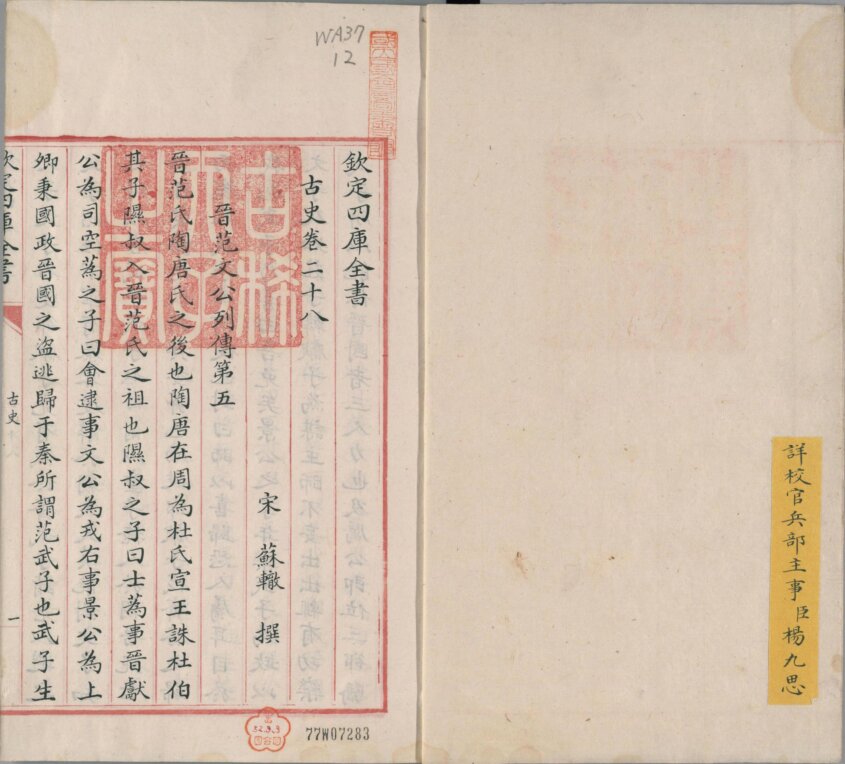 詳校官兵部主事臣楊九思
WA37
12
欽定四庫全書
古史卷二十八
宋 蘇轍 撰
晉范文公列傳第五
晉范氏陶唐氏之後也陶唐在周為杜氏宣王誅杜伯
其子隰叔入晉范氏之祖也隰叔之子曰士蒍事晉獻
公為司空蒍之子曰會逮事文公為戎右事景公為上
卿秉國政晉國之盜逃歸于秦所謂范武子也武子生
欽定四庫全書
古史
一
古稀天子之寶
77W07283